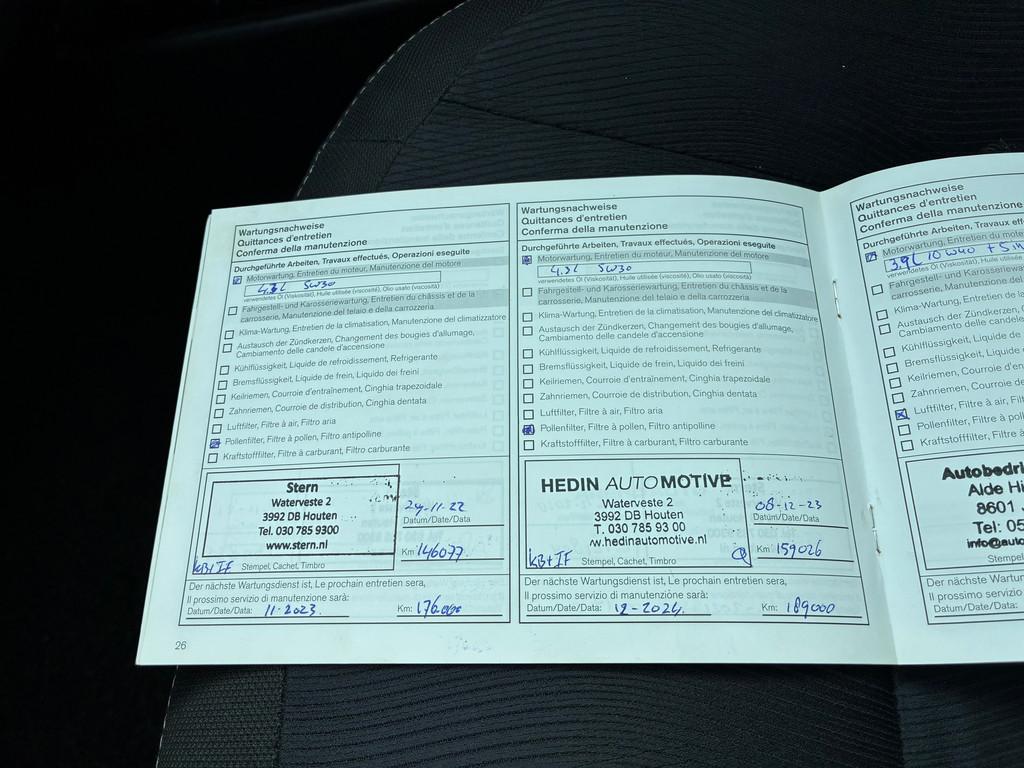 Wartungsnachweise
Quittances d'entretien
Conferma della manutenzione
Durchgeführte Arbeiten, Travaux effectués, Operazioni eseguite
Motorwartung, Entretien du moteur, Manutenzione del motore
4,3L 5W30
verwendetes Öl (Viskosität), Huile utilisée (viscosité), Olio usato (viscosità)
Fahrgestell- und Karosseriewartung, Entretien du châssis et de la
carrosserie, Manutenzione del telaio e della carrozzeria
Klima-Wartung, Entretien de la climatisation, Manutenzione del climatizzatore
Austausch der Zündkerzen, Changement des bougies d'allumage,
Cambiamento delle candele d'accensione
Kühlflüssigkeit, Liquide de refroidissement, Refrigerante
Bremsflüssigkeit, Liquide de frein, Liquido dei freini
Keilriemen, Courroie d'entraînement, Cinghia trapezoidale
Zahnriemen, Courroie de distribution, Cinghia dentata
Luftfilter, Filtre à air, Filtro aria
Pollenfilter, Filtre à pollen, Filtro antipolline
Kraftstofffilter, Filtre à carburant, Filtro carburante
Stern
Waterveste 2
3992 DB Houten
Tel. 030 785 9300
www.stern.nl
KB+IF
Stempel, Cachet, Timbro
24-11-22
Datum/Date/Data
Km: 146077
Der nächste Wartungsdienst ist, Le prochain entretien sera,
Il prossimo servizio di manutenzione sarà:
Datum/Date/Data: 11-2023. Km: 176.000
26
Wartungsnachweise
Quittances d'entretien
Conferma della manutenzione
Durchgeführte Arbeiten, Travaux effectués, Operazioni eseguite
Motorwartung, Entretien du moteur, Manutenzione del motore
4,3L 5W30
verwendetes Öl (Viskosität), Huile utilisée (viscosité), Olio usato (viscosità)
Fahrgestell- und Karosseriewartung, Entretien du châssis et de la
carrosserie, Manutenzione del telaio e della carrozzeria
Klima-Wartung, Entretien de la climatisation, Manutenzione del climatizzatore
Austausch der Zündkerzen, Changement des bougies d'allumage,
Cambiamento delle candele d'accensione
Kühlflüssigkeit, Liquide de refroidissement, Refrigerante
Bremsflüssigkeit, Liquide de frein, Liquido dei freini
Keilriemen, Courroie d'entraînement, Cinghia trapezoidale
Zahnriemen, Courroie de distribution, Cinghia dentata
Luftfilter, Filtre à air, Filtro aria
Pollenfilter, Filtre à pollen, Filtro antipolline
Kraftstofffilter, Filtre à carburant, Filtro carburante
HEDIN AUTOMOTIVE
Waterveste 2
3992 DB Houten
T. 030 785 93 00
w.hedinautomotive.nl
KB+IF
Stempel, Cachet, Timbro
08-12-23
Datum/Date/Data
Km: 159026
Der nächste Wartungsdienst ist, Le prochain entretien sera,
Il prossimo servizio di manutenzione sarà:
Datum/Date/Data: 12-2024. Km: 189000
Wartungsnachweise
Quittances d'entretien
Conferma della manutenzione
Durchgeführte Arbeiten, Travaux eff
Motorwartung, Entretien du mote
3,9L 10W40
verwendetes Öl (Viskosität), Huile utilis
Fahrgestell- und Karosseriewartung
carrosserie, Manutenzione del
Klima-Wartung, Entretien de la
Austausch der Zündkerzen,
Cambiamento delle candele d
Kühlflüssigkeit, Liquide de
Bremsflüssigkeit, Liquide
Keilriemen, Courroie d'en
Zahnriemen, Courroie de
Luftfilter, Filtre à air, Filt
Pollenfilter, Filtre à pol
Kraftstofffilter, Filtre à
Autobedri
Alde Hi
8601
Tel: 05
info@auto
Stempel, Cachet, Timbro
Der nächste Wartun
Il prossimo servizio
Datum/Date/Data: